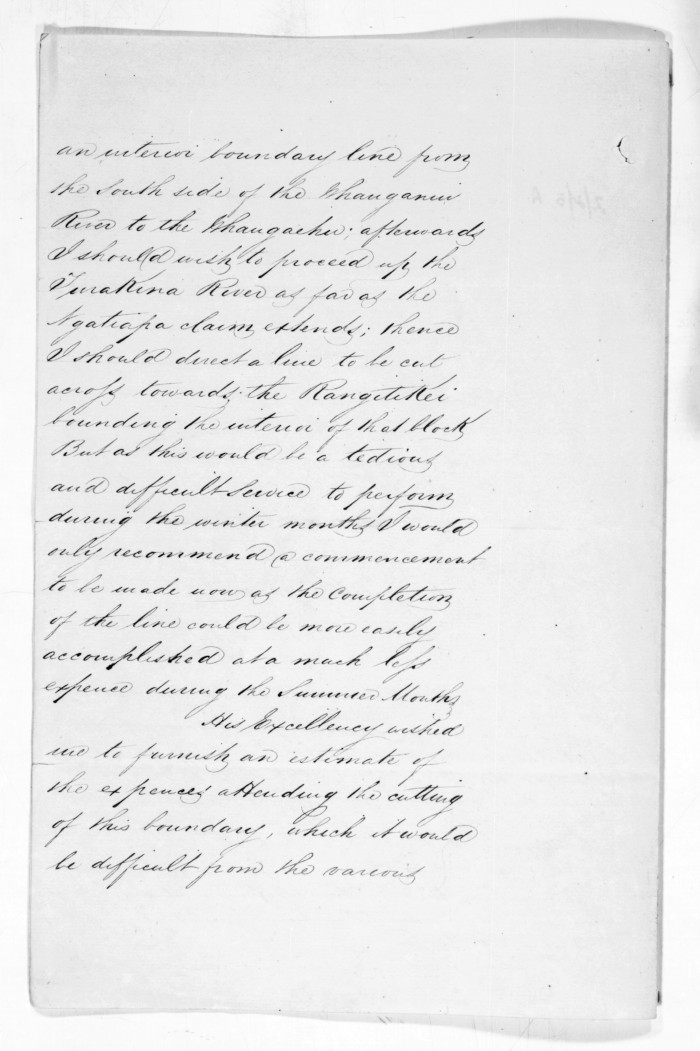 an interior boundary line from
the South side of the Whanganui
River to the Whangaehu; afterwards
I should wish to proceed up the
Turakina River as far as the
Ngatiapa claim extends; thence
I should direct a line to be cut
across towards the Rangitikei
bounding the interior of that block
But as this would be a tedious
and difficult Service to perform
during the winter months I would
only recommend a commencement
to be made now as the Completion
of the line could be more easily
accomplished at a much less
expence during the Summer Months
His Excellency wished
me to furnish an estimate of
the expences attending the cutting
of this boundary, which it would
be difficult from the various